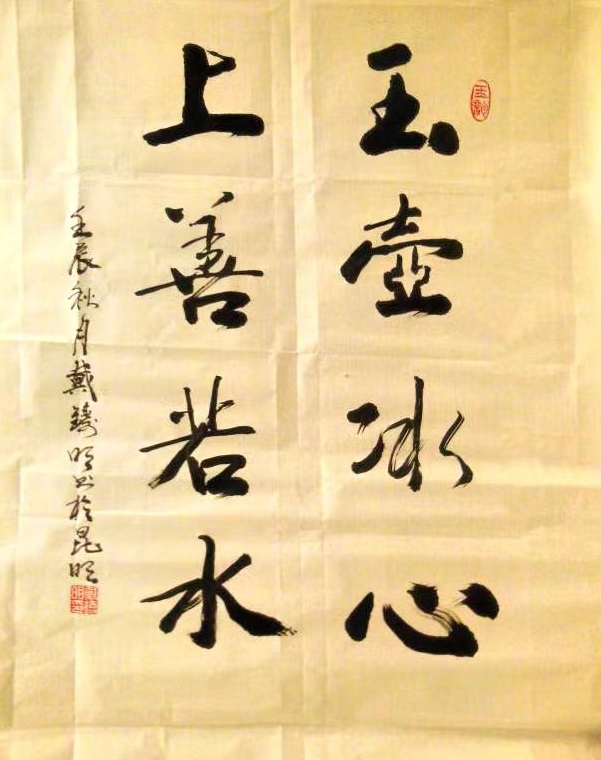 玉壺冰心
上善若水
壬辰秋月戴鑄明书於昆明